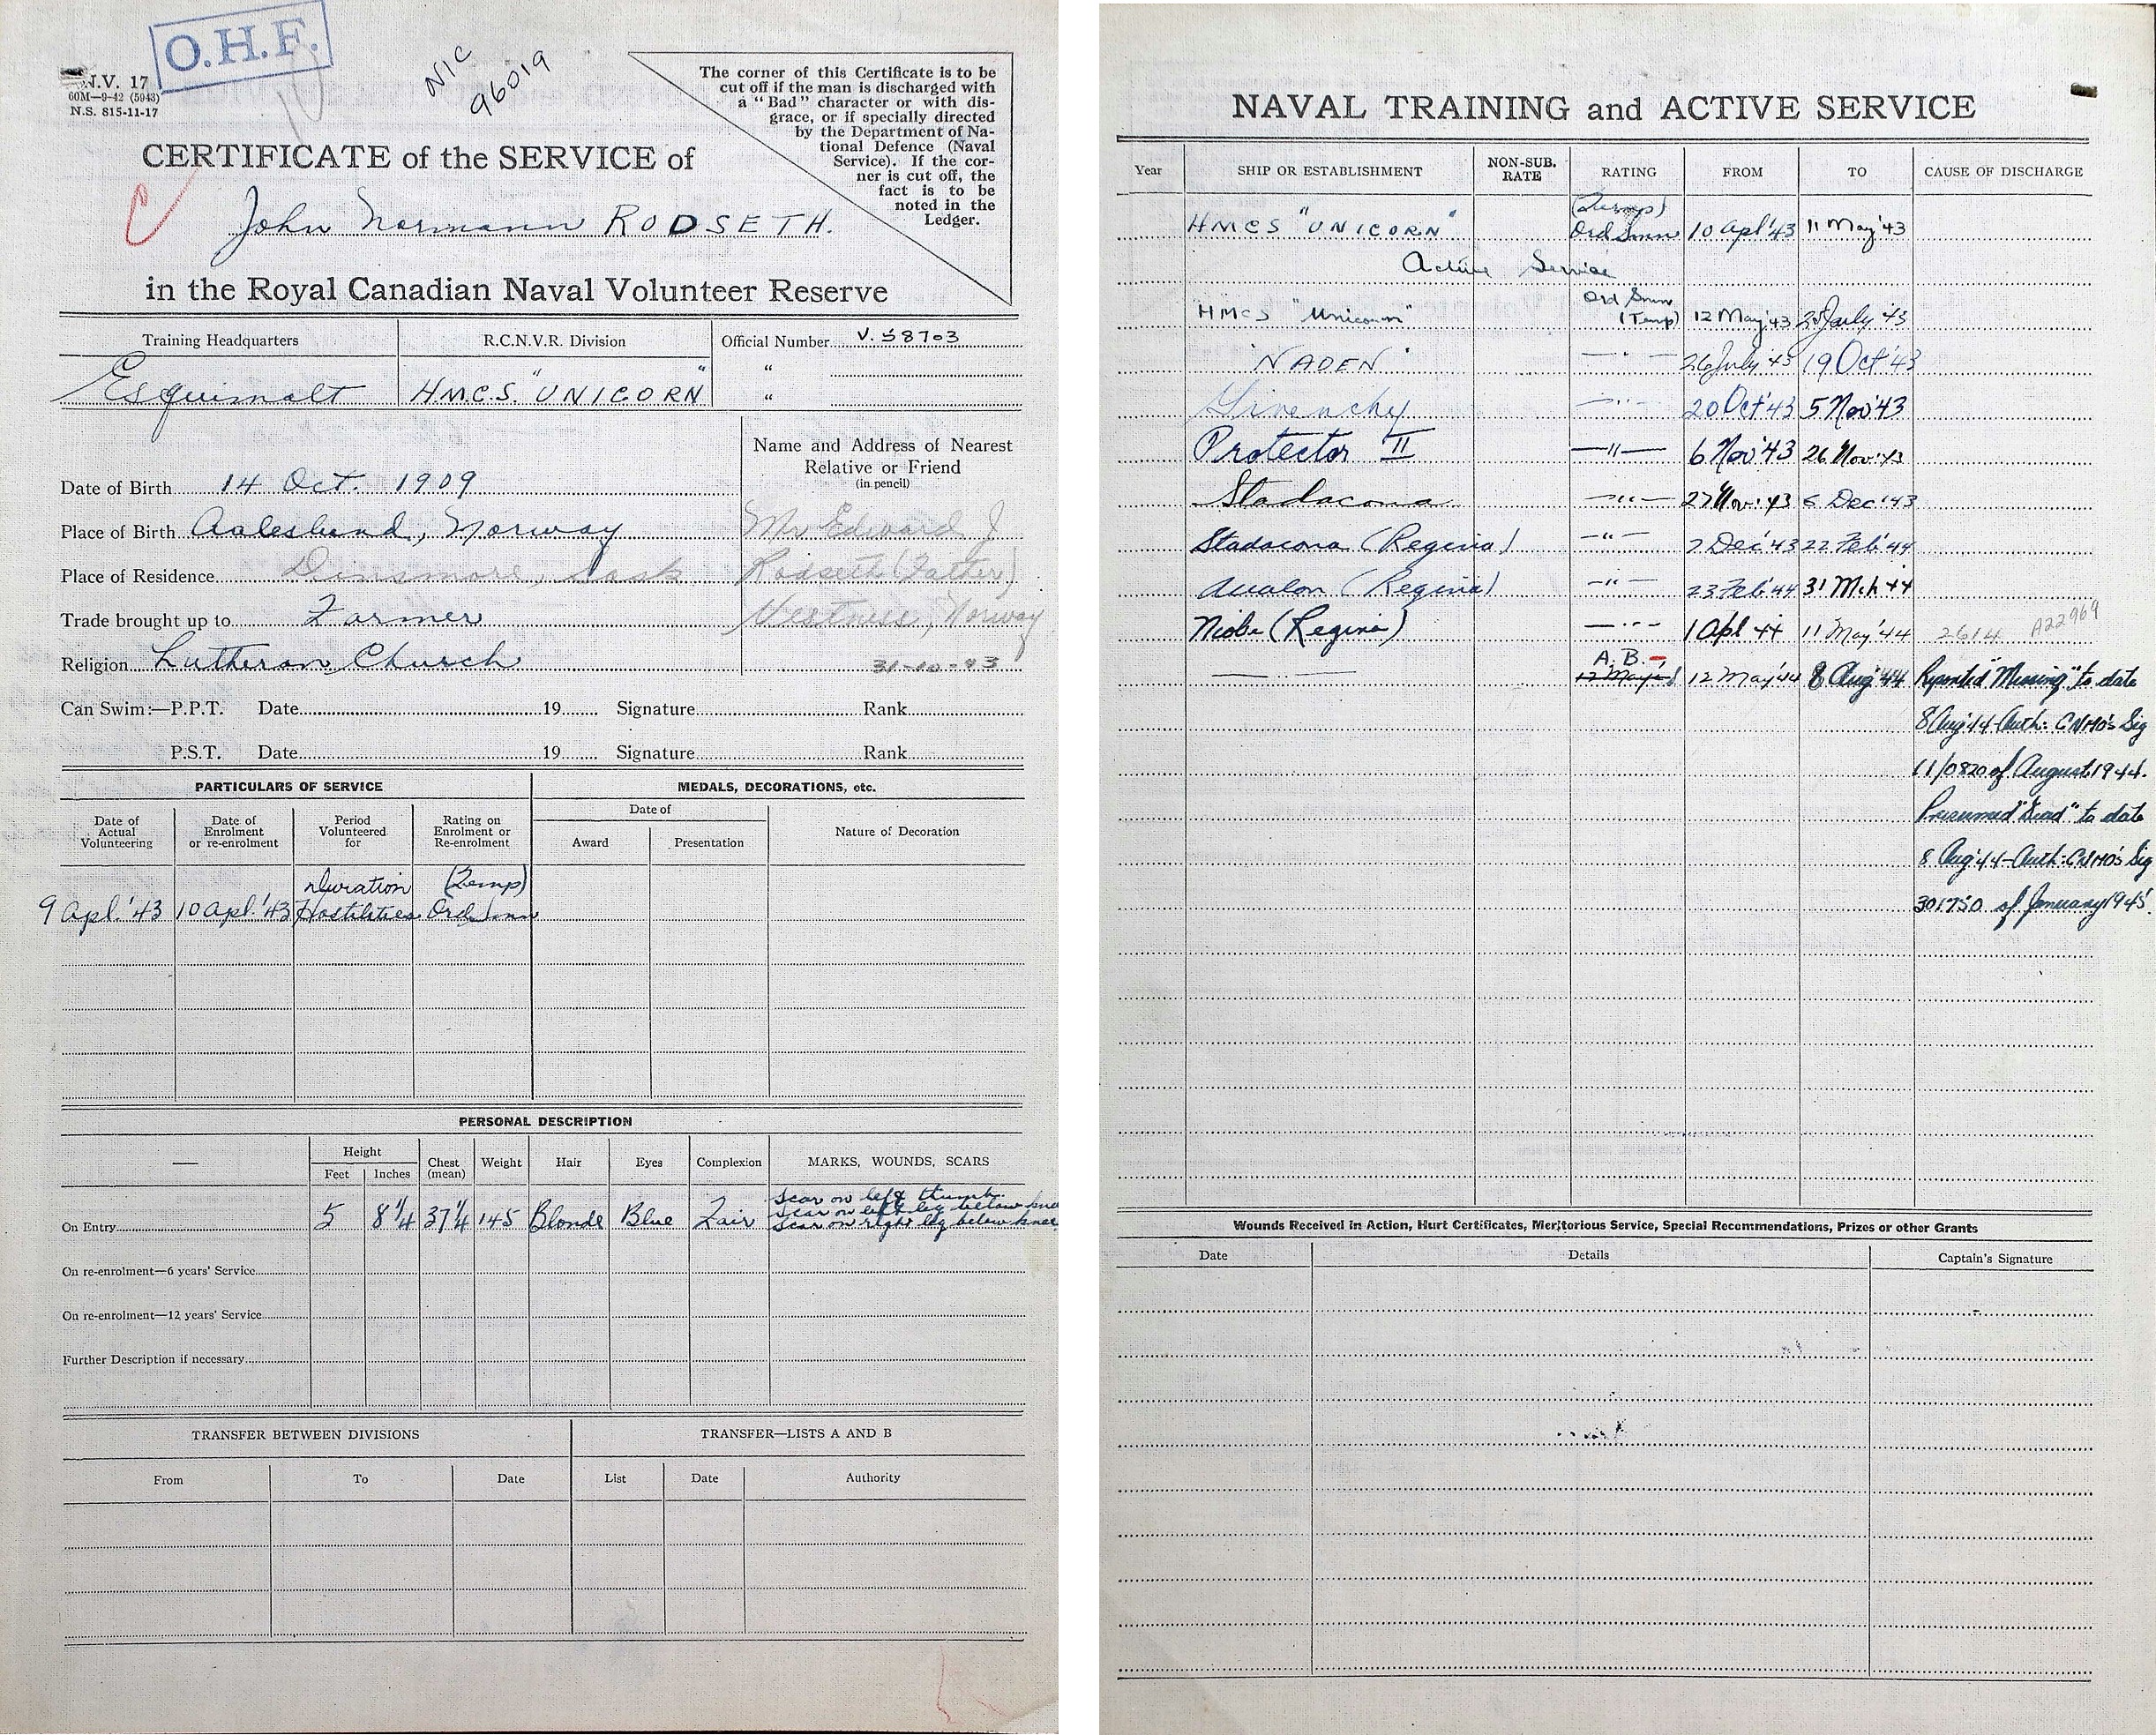 O.H.F.
N.V. 17
60M—9-42 (5943)
N.S. 815-11-17
NIC
96019
The corner of this Certificate is to be
cut off if the man is discharged with
a "Bad" character or with dis-
grace, or if specially directed
by the Department of Na-
tional Defence (Naval
Service). If the cor-
ner is cut off, the
fact is to be
noted in the
Ledger.
CERTIFICATE of the SERVICE of
C
John Normann RODSETH.
in the Royal Canadian Naval Volunteer Reserve
Training Headquarters R.C.N.V.R. Division Official Number V.58703
"
Esquimalt H.M.C.S. "UNICORN" "
Name and Address of Nearest
Relative or Friend
(in pencil)
Date of Birth 14 Oct. 1909
Place of Birth Aaleslund, Norway Mr Edward J
Place of Residence Dinsmore, Sask Rodseth (Father)
Trade brought up to Farmer Vestness, Norway
Religion Lutheran Church 31-10-43
Can Swim:—P.P.T. Date 19 Signature Rank
P.S.T. Date 19 Signature Rank
PARTICULARS OF SERVICE MEDALS, DECORATIONS, etc.
Date of Actual Volunteering Date of Enrolment or re-enrolment Period Volunteered for Rating on Enrolment or Re-enrolment Date of Award Presentation Nature of Decoration
duration (Temp)
9 Apl.'43 10 Apl.'43 Hostilities Ord Smn
PERSONAL DESCRIPTION
— Height Feet Inches Chest (mean) Weight Hair Eyes Complexion MARKS, WOUNDS, SCARS
scar on left thumb.
scar on left leg below knee
On Entry 5 8 1/4 37 1/4 145 Blonde Blue Fair scar on right leg below knee.
On re-enrolment—6 years' Service
On re-enrolment—12 years' Service
Further Description if necessary
TRANSFER BETWEEN DIVISIONS TRANSFER—LISTS A AND B
From To Date List Date Authority
NAVAL TRAINING and ACTIVE SERVICE
Year SHIP OR ESTABLISHMENT NON-SUB. RATE RATING FROM TO CAUSE OF DISCHARGE
(Temp)
HMCS "UNICORN" Ord Smn 10 Apl '43 11 May '43
Active Service
Ord Smn
HMCS "Unicorn" (Temp) 12 May '43 25 July '43
"NADEN" —"— 26 July '43 19 Oct '43
Givenchy —"— 20 Oct '43 5 Nov '43
Protector II —"— 6 Nov '43 26 Nov '43
Stadacona —"— 27 Nov '43 6 Dec '43
Stadacona (Regina) —"— 7 Dec '43 22 Feb '44
Avalon (Regina) —"— 23 Feb '44 31 Mch 44
Niobe (Regina) —"— 1 Apl 44 11 May '44 2614 A22969
A.B.
— — 12 May 12 May '44 8 Aug '44 Reported "Missing" to date
8 Aug '44 - Auth: CNMO's Sig
11/0820 of August 1944.
Presumed "Dead" to date
8 Aug '44 - Auth: CNMO's Sig
301750 of January 1945.
Wounds Received in Action, Hurt Certificates, Meritorious Service, Special Recommendations, Prizes or other Grants
Date Details Captain's Signature